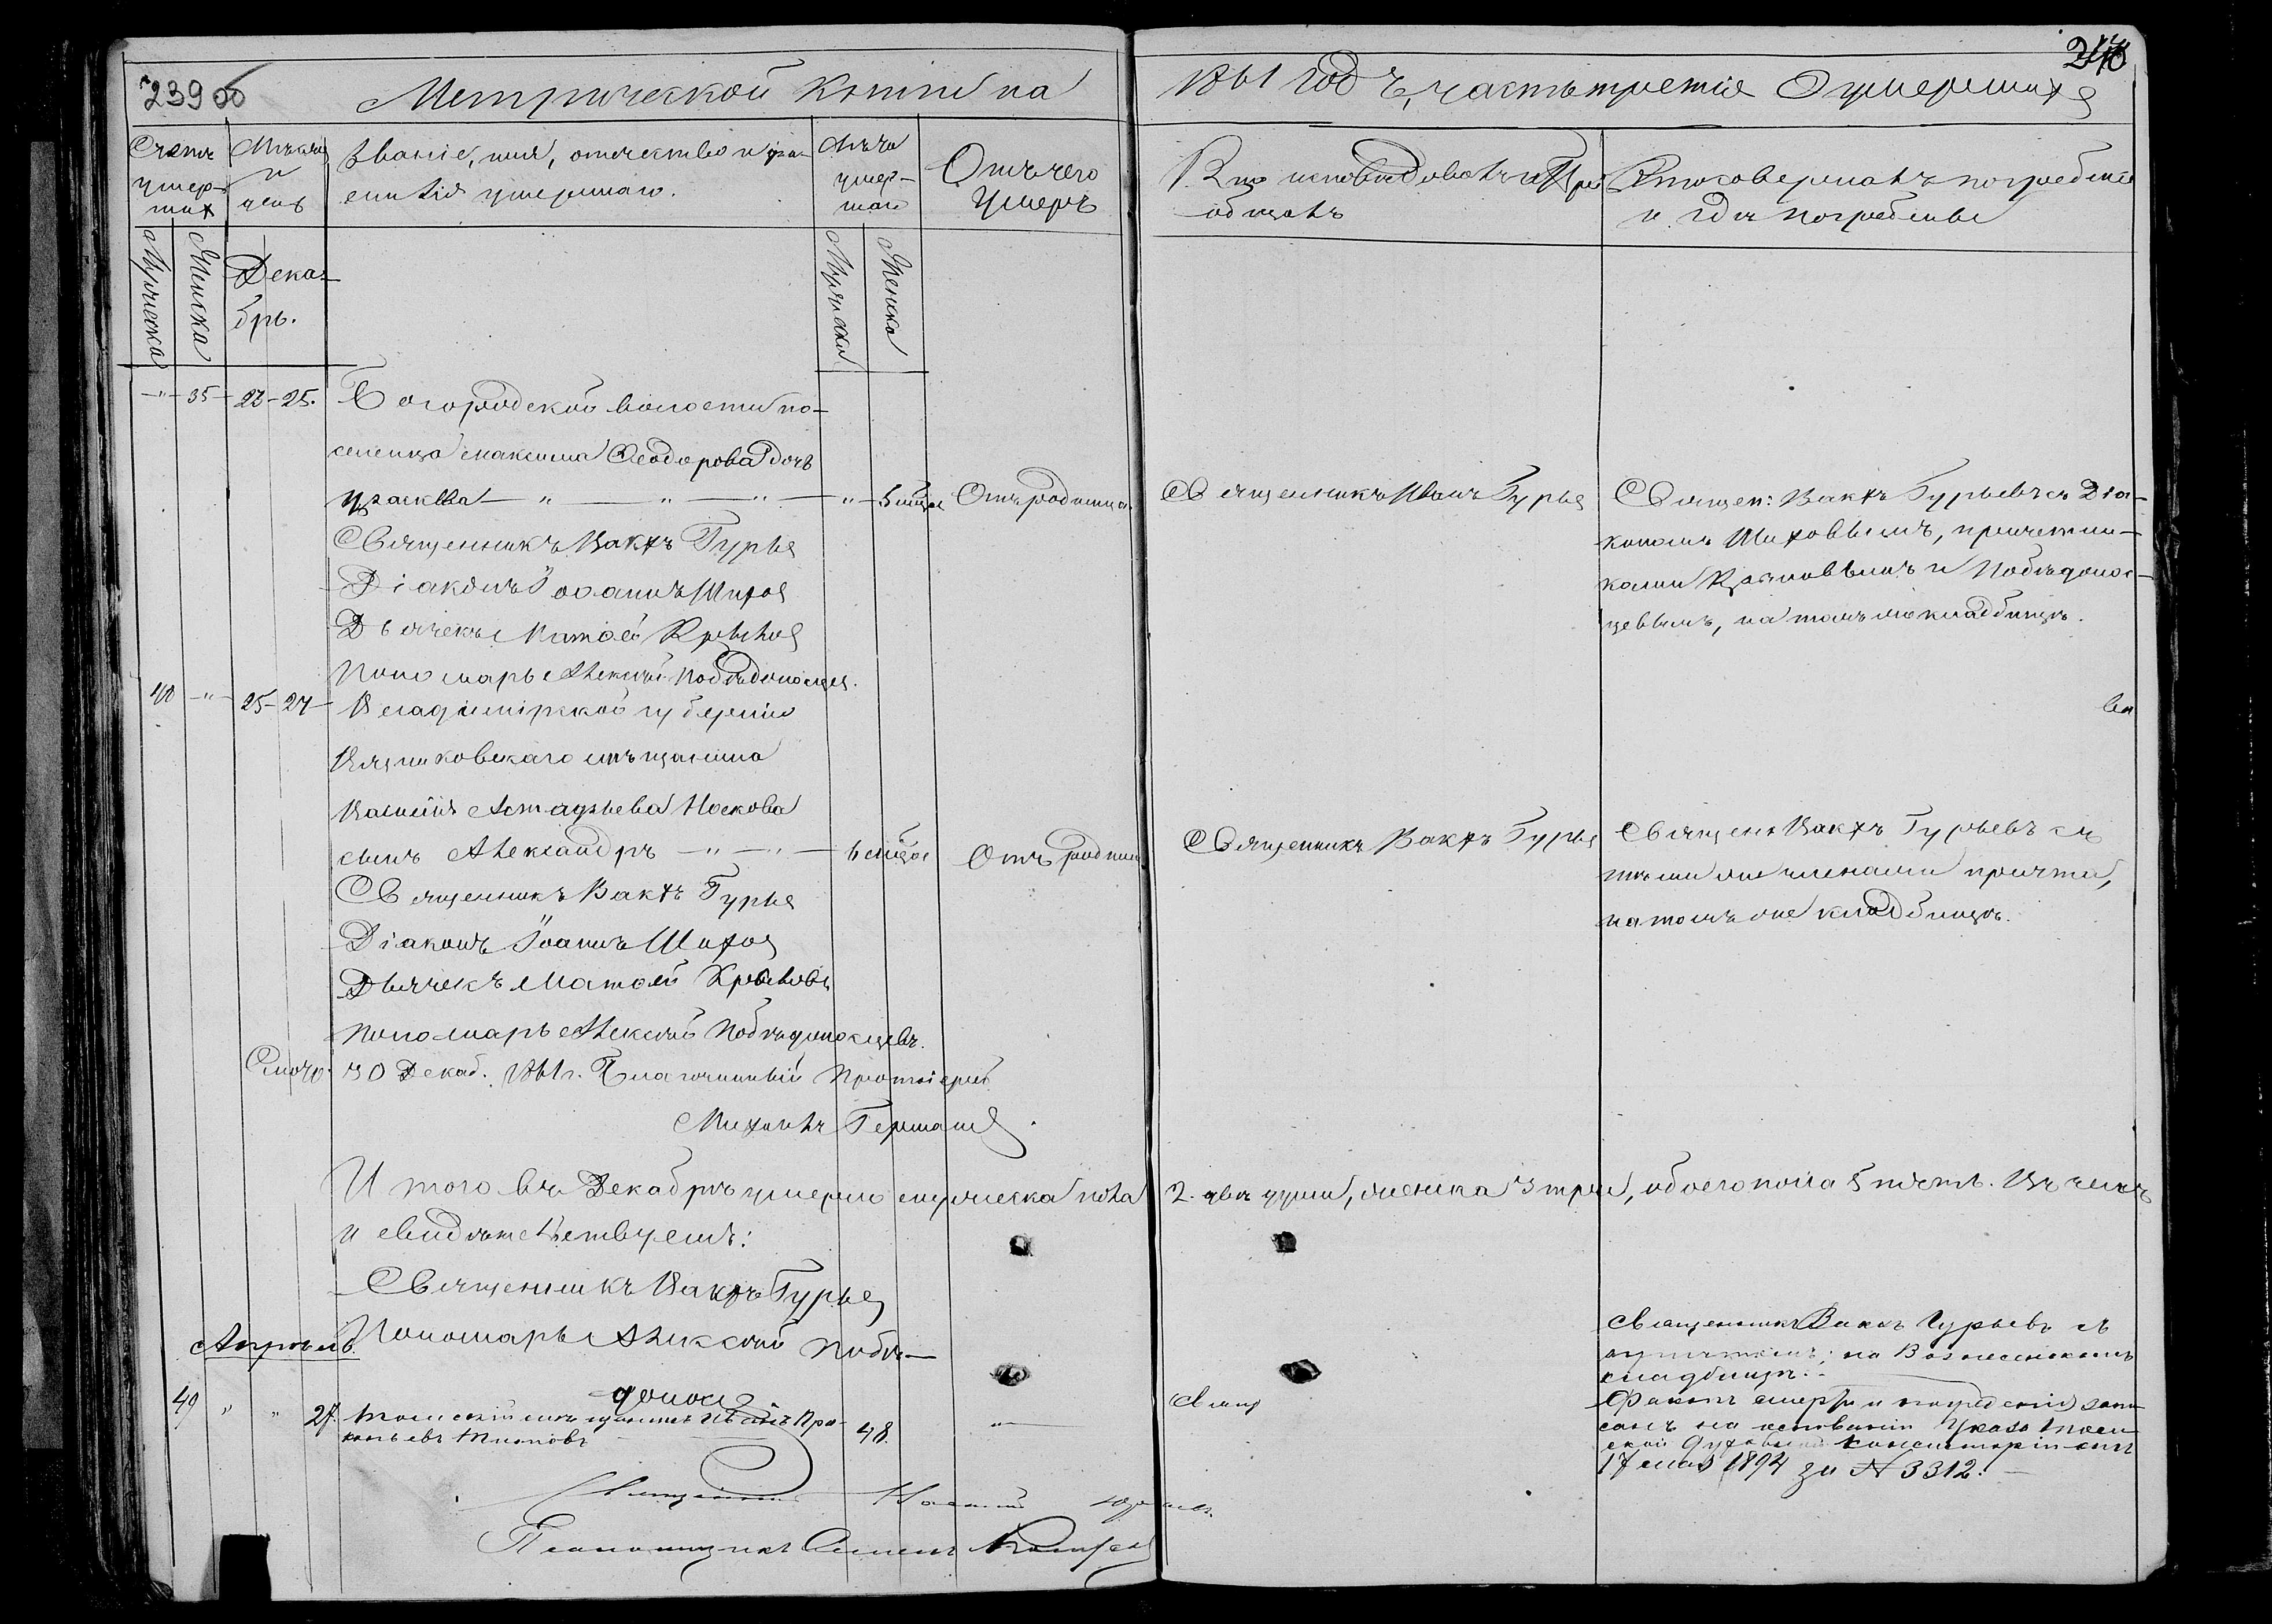 239 об
Метрической книги на
1861 годъ, часть третія О умершихъ
240
Счетъ умершихъ
Мѣсяцъ и день
Званіе, имя, отчество и фамилія умершаго.
Лѣта умершаго
Отъ чего умеръ
Кто исповѣдовалъ и пріобщалъ
Кто совершалъ погребеніе и гдѣ погребены
Мужеска
Женска
Декабрь.
Мужеска
Женска
35 23-25. Богородской волости по-
селенца Максима Феодорова дочь
" " " " Отъ родимца
Священникъ Гурьев
Священ: Вакхъ Гурьевъ съ Діа-
кономъ Шиховымъ, причетни-
ками и Побѣдонос-
цевымъ, на томъ же кладбищѣ.
Священникъ Вакхъ Гурьев
Діаконъ Іоаннъ Шихов
Дьячекъ Матѳей
Пономарь Алексѣй Побѣдоносцев.
40 " 25-27 Владимірской губерніи
Вязниковскаго мѣщанина
Василія Астафьева Носкова
сынъ Александръ " " Отъ родимц
Священникъ Вакхъ Гурьев
Священ Вакхъ Гурьевъ съ
тѣми же членами причта,
на томъ же кладбищѣ.
Священникъ Вакхъ Гурьев
Діаконъ Іоаннъ Шихов
Дьячекъ Матѳей
Пономарь Алексѣй Побѣдоносцевъ.
30 Декаб. 1861г. Благочинный Протоіерей
Михаилъ
Итого въ Декабрѣ умерло мужеска пола 2. двѣ души, женска 3 три, обоего пола 5 пять. Въ чемъ
и свидѣтельствуемъ:
Священникъ Вакхъ Гурьев
Пономарь Алексѣй Побѣ-
донос
Апрѣль.
49 " " 27. Томскій мѣщанинъ Иванъ Про-
копьевъ
48.
"
Свящ
Священникъ Вакхъ Гурьевъ съ
причтомъ; на Вознесенскомъ
кладбищѣ.
Фактъ смерти и погребенія запи-
санъ на основаніи Указа Том-
ской Духовной Консисторіи отъ
17 мая 1894 за № 3312.
Священникъ
Псаломщикъ